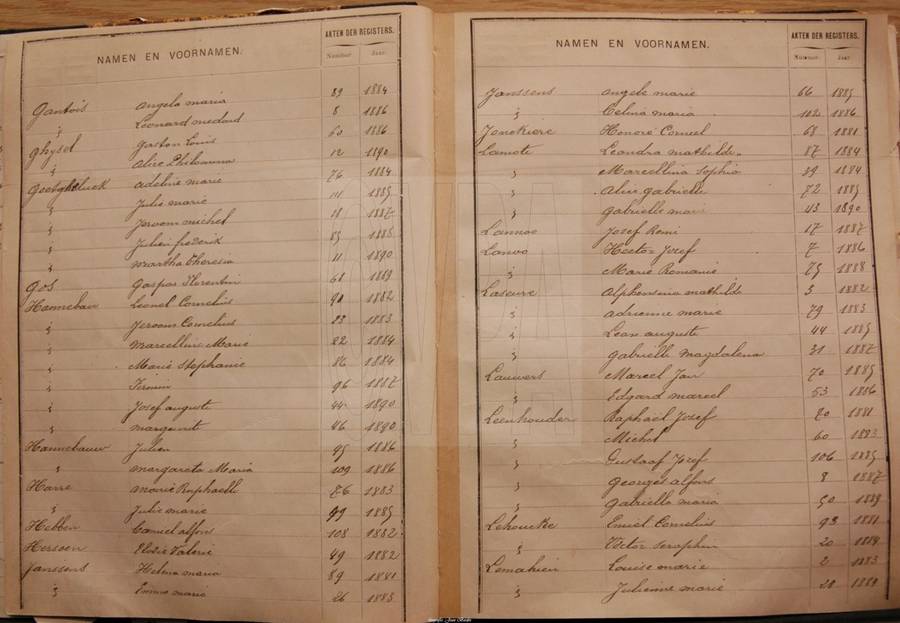 NAMEN EN VOORNAMEN. AKTEN DER REGISTERS.
Nummer. Jaar.
Gantois angela maria 29 1884
" Leonard medard 8 1886
Ghysel Gaston Louis 60 1886
" alice Philomena 12 1890
Goetgheluck adeline marie 76 1884
" Julie marie 111 1885
" Jeroom michel 18 1887
" Julien frederik 85 1888
" martha Theresia 11 1890
Gos Gaspar Florentin 68 1889
Hannebau Leonel Cornelius 90 1882
" Jeroom Cornelius 23 1883
" Marcellin Marie 22 1884
" Marie Stephanie 86 1884
" Firmin 96 1887
" Josef auguste 44 1890
" margerit 46 1890
Hannebauw Julien 95 1886
" margareta Maria 109 1886
Harre Marie Raphaelle 76 1883
" Julie marie 99 1885
Hebben Camiel alfons 108 1882
Herssen Elodie Valerie 49 1882
Janssens Helena maria 89 1881
" Emma marie 26 1883
NAMEN EN VOORNAMEN. AKTEN DER REGISTERS.
Nummer. Jaar.
Janssens angele marie 66 1885
" Celina maria 102 1886
Jonckiere Honoré Camiel 68 1881
Lamote Leandra mathilde 87 1884
" Marcellina Sophia 39 1884
" Alice gabrielle 72 1885
" gabrielle mari 43 1890
Lannoo Josef Remi 17 1887
Lanoo Hector Josef 7 1886
" Marie Romanie 75 1888
Laseure Alphonsina mathilde 3 1882
" adrienne marie 79 1883
" Leon auguste 44 1885
" gabrielle magdalena 31 1887
Lauwers Marcel Jan 70 1885
" Edgard marcel 53 1886
Leenhouder Raphaël Josef 20 1881
" Michel 60 1883
" Gustaaf Jozef 106 1885
" Georges alfons 8 1887
" Gabrielle maria 50 1889
Lehoucke Emiel Cornelius 93 1881
" Victor Seraphin 20 1884
Lemahieu Louise marie 2 1883
" Julienne marie 28 1884